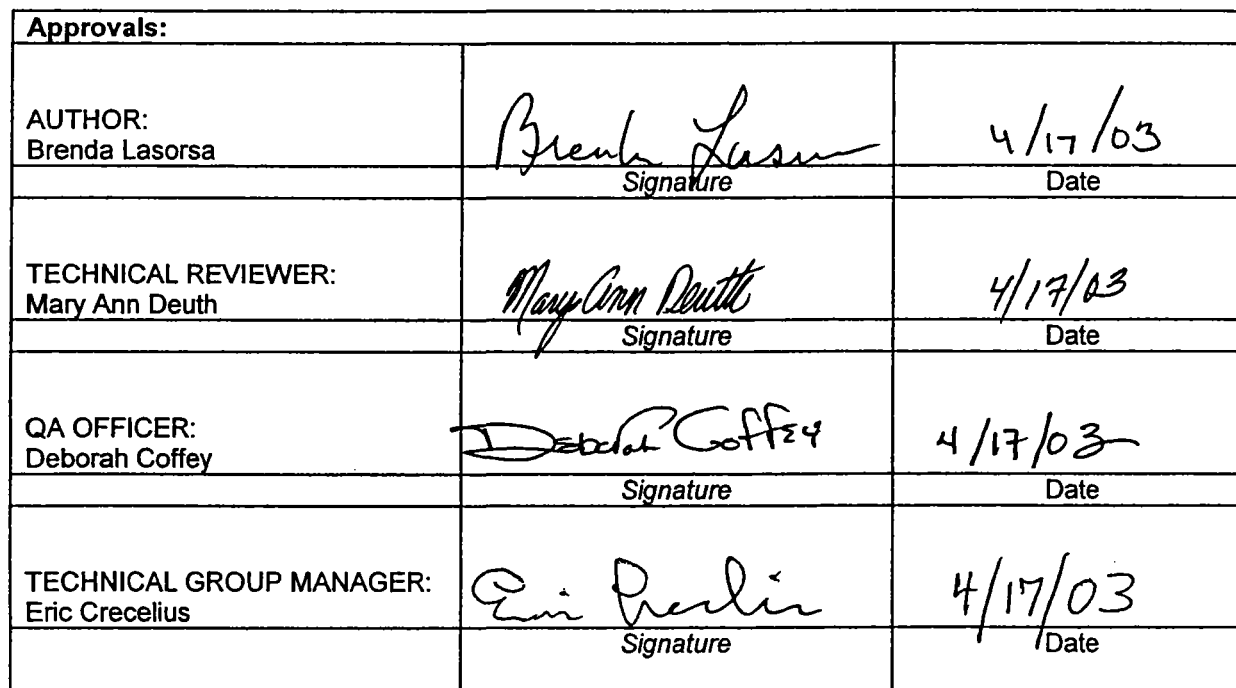 Approvals:
AUTHOR:
Brenda Lasorsa
Brenda Lasorsa 4/17/03
Signature Date
TECHNICAL REVIEWER:
Mary Ann Deuth
Mary Ann Deuth 4/17/03
Signature Date
QA OFFICER:
Deborah Coffey
Deborah Coffey 4/17/03
Signature Date
TECHNICAL GROUP MANAGER:
Eric Crecelius
Eric Crecelius 4/17/03
Signature Date